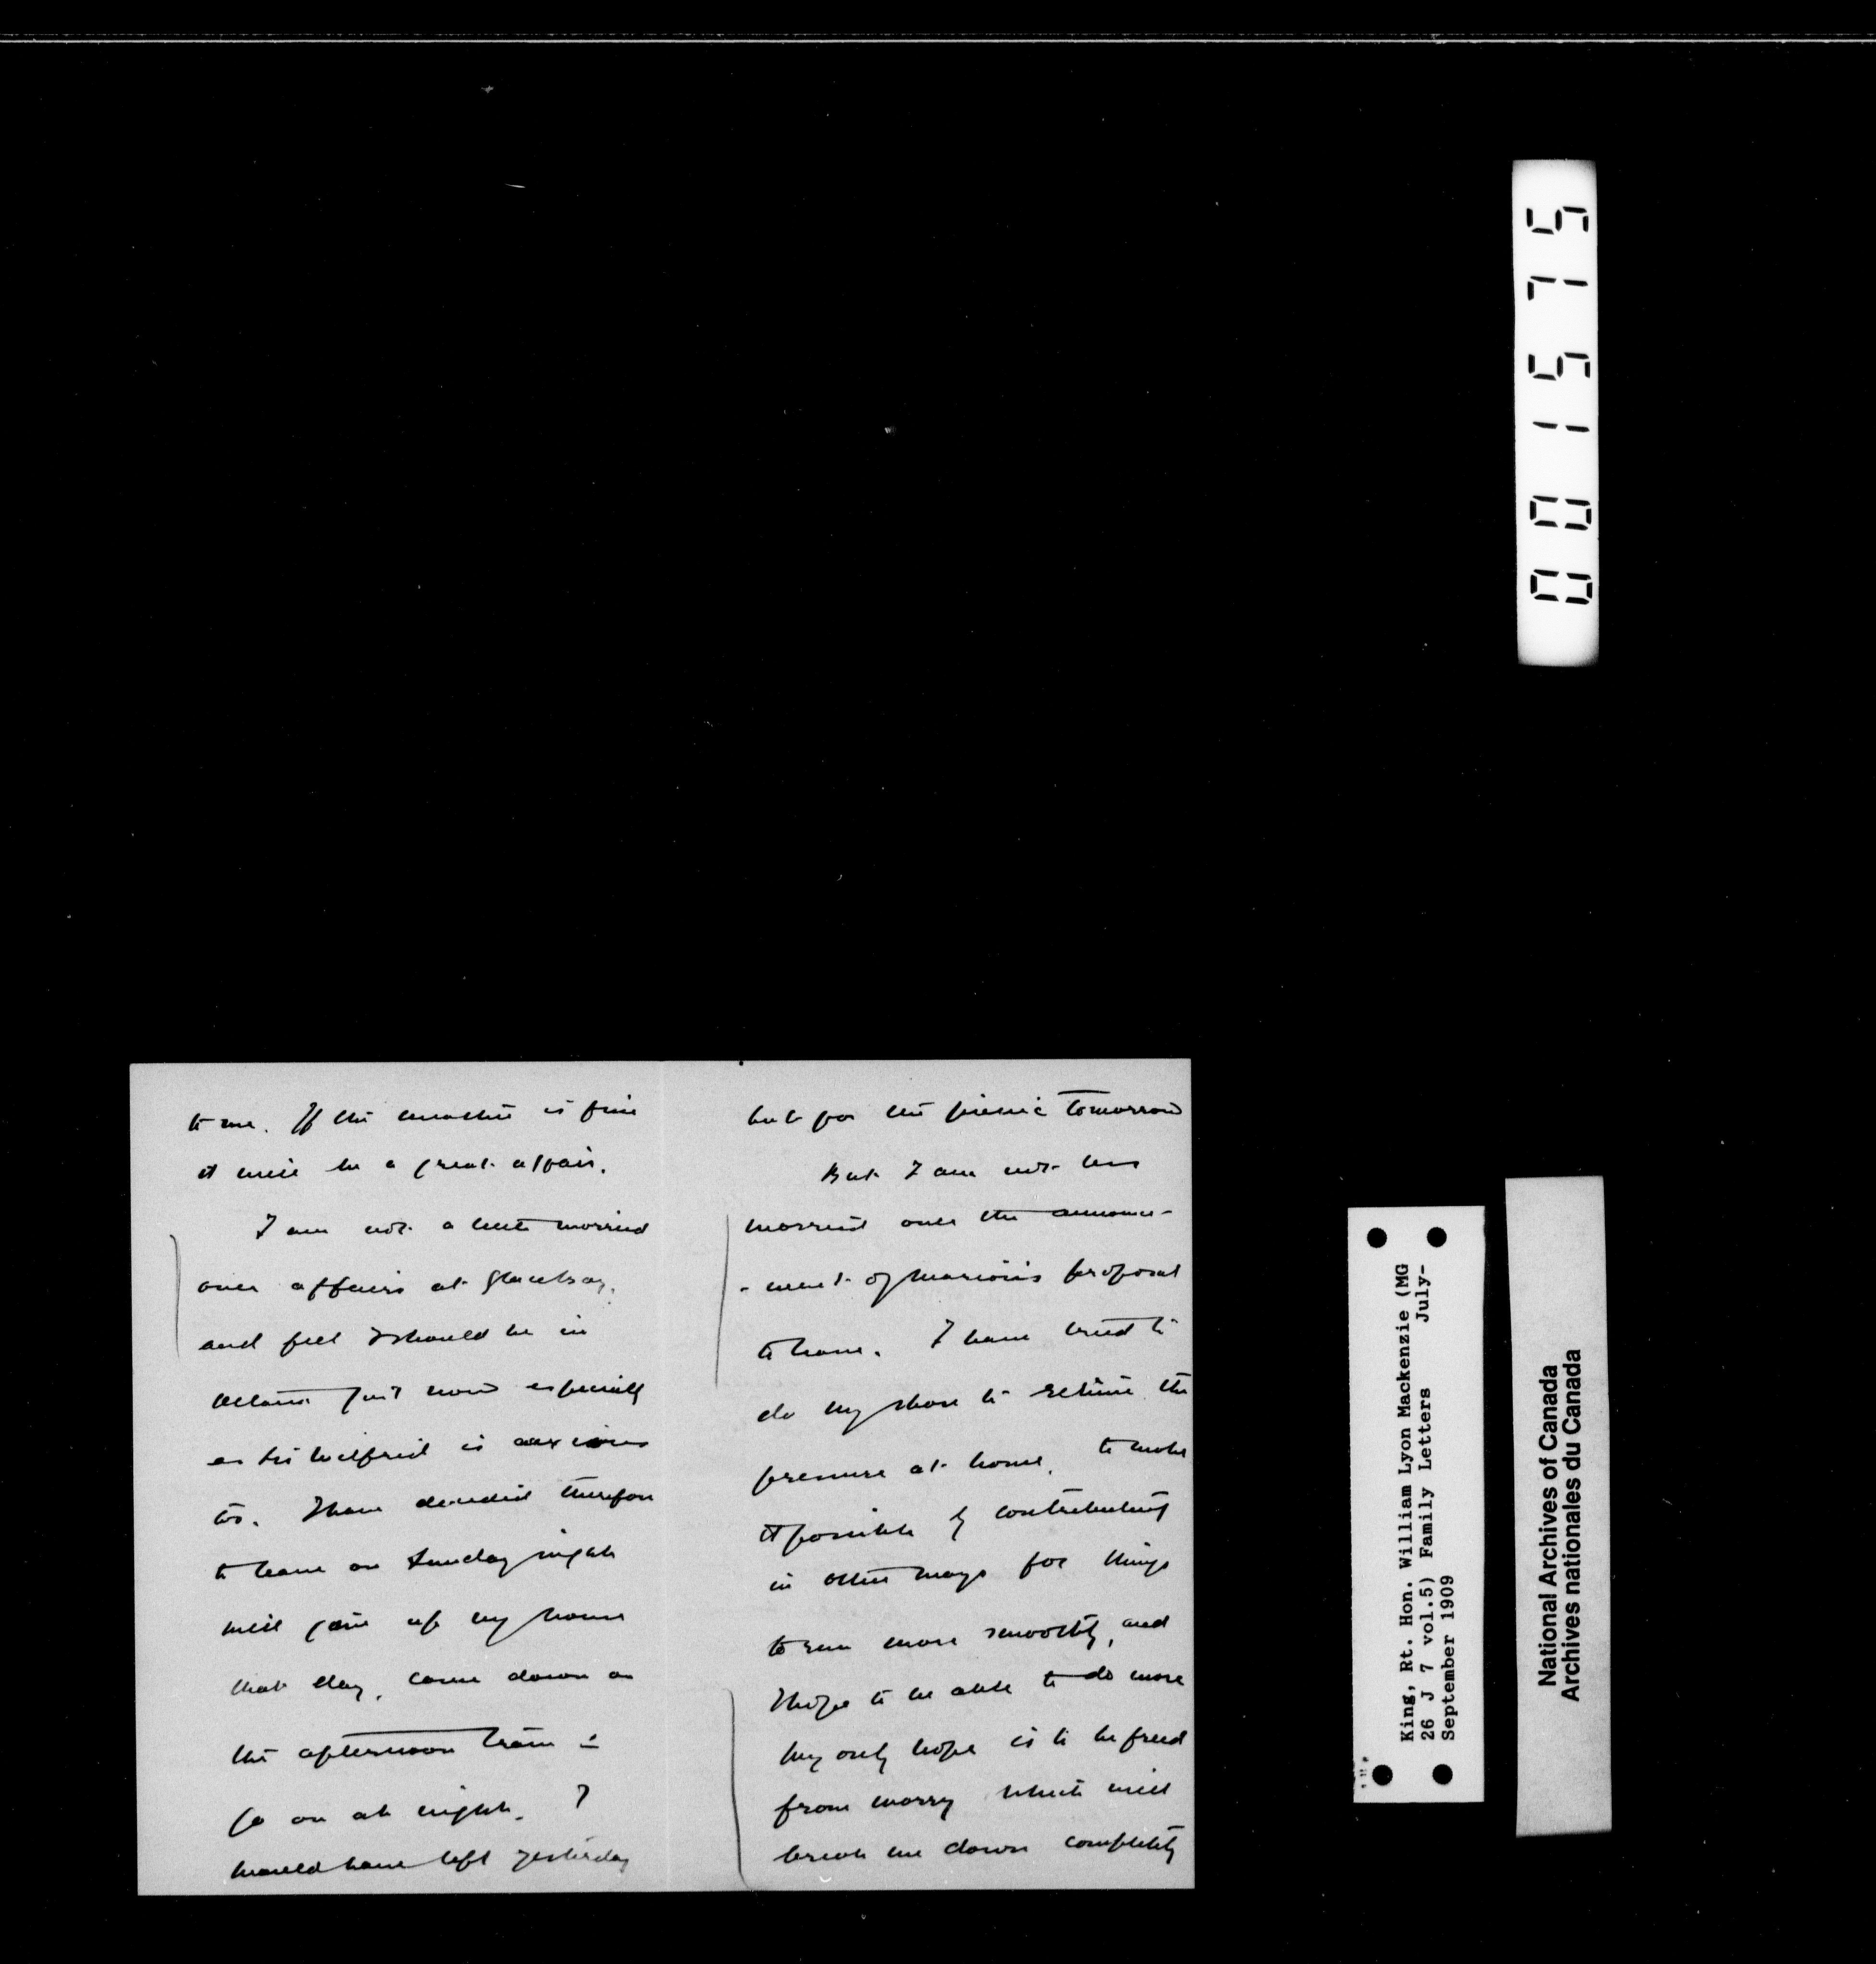 to me. If the weather is fine
it will be a great affair.
I am not a little worried
over affairs at Glace Bay,
and feel I should be in
Ottawa just now especially
as Sir Wilfrid is anxious
to. I have decided therefore
to leave on Sunday night
will give up my house
that day, come down on
the afternoon train &
go on at night. I
would have left yesterday
but for the picnic tomorrow
But I am not less
worried over the announce-
-ment of Marion's proposal
to have. I have tried to
do my share to relieve the
pressure at home, to make
it possible by contributing
in other ways for things
to run more smoothly, and
I hope to be able to do more
My only hope is to be freed
from worry which will
break me down completely
0015715
King, Rt. Hon. William Lyon Mackenzie (MG
26 J 7 vol.5) Family Letters July-
September 1909
National Archives of Canada
Archives nationales du Canada